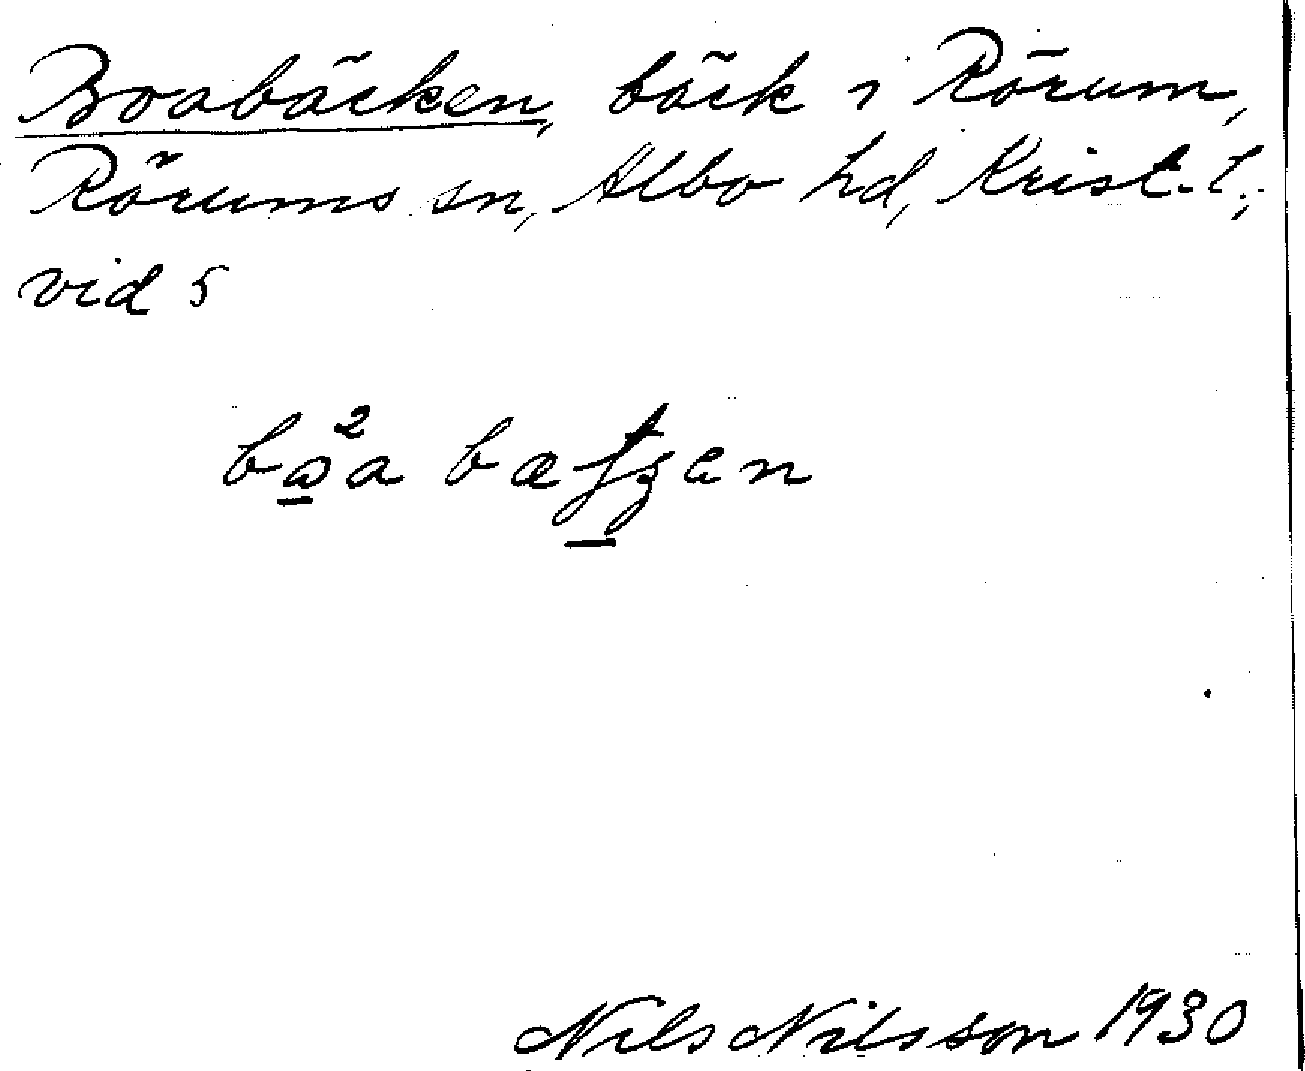 Boabäcken, bäck i Rörum,
Rörums sn, Albo hd, Krist. l;
vid 5
Nils Nilsson 1930